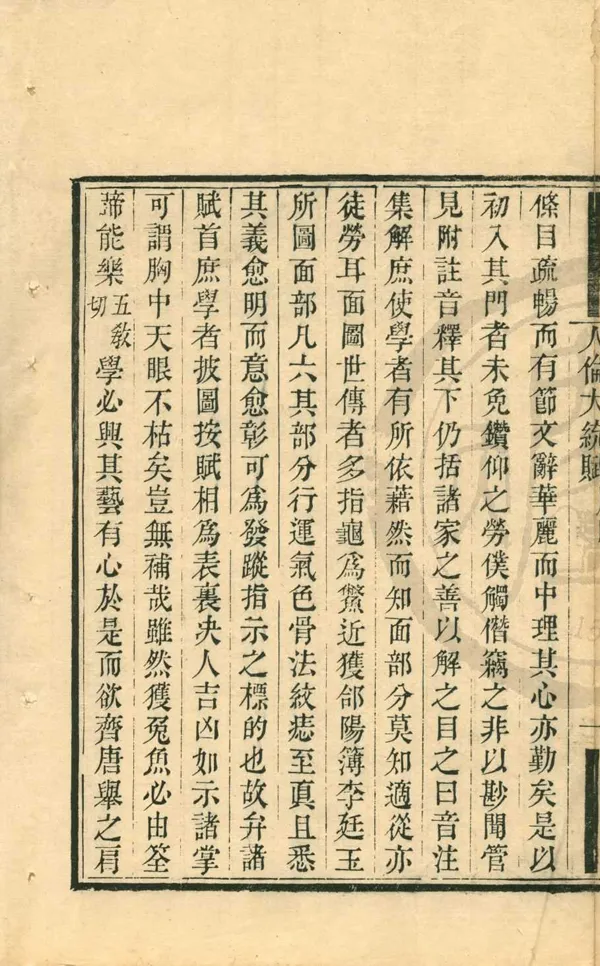 人倫大統賦
條目疏暢而有節文辭華麗而中理其心亦勤矣是以
初入其門者未免鑽仰之勞僕觸僭竊之非以尠聞管
見附註音釋其下仍括諸家之善以解之目之曰音注
集解庶使學者有所依藉然而知面部分莫知適從亦
徒勞耳面圖世傳者多指龜為鱉近獲郃陽簿李廷玉
所圖面部凡六其部分行運氣色骨法紋痣至真且悉
其義愈明而意愈彰可為發蹤指示之標的也故弁諸
賦首庶學者披圖按賦相為表裏决人吉凶如示諸掌
可謂胸中天眼不枯矣豈無補哉雖然獲兔魚必由筌
蹄能樂五教切學必興其藝有心於是而欲齊唐舉之肩
一